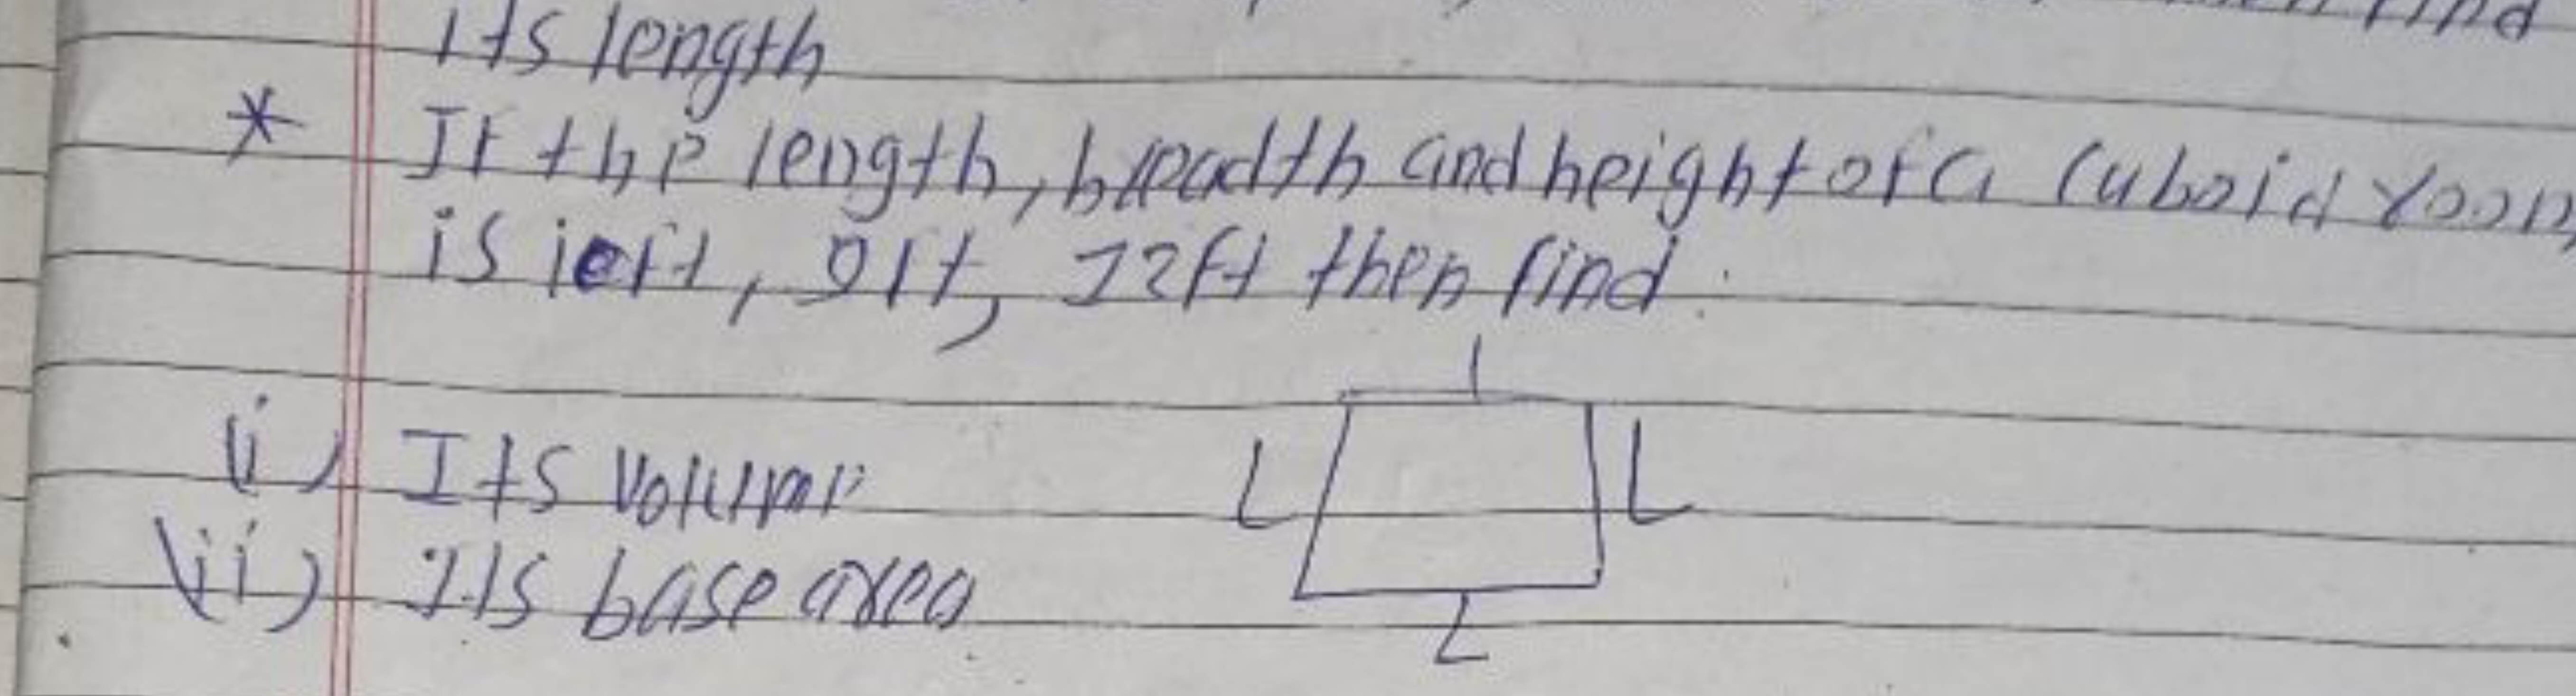 find
its length
* If the length, breadth and height of a cuboid room
is 10ft, 9ft, 12ft then find.
L
(i) Its volume
L L
(ii) Its base area
L